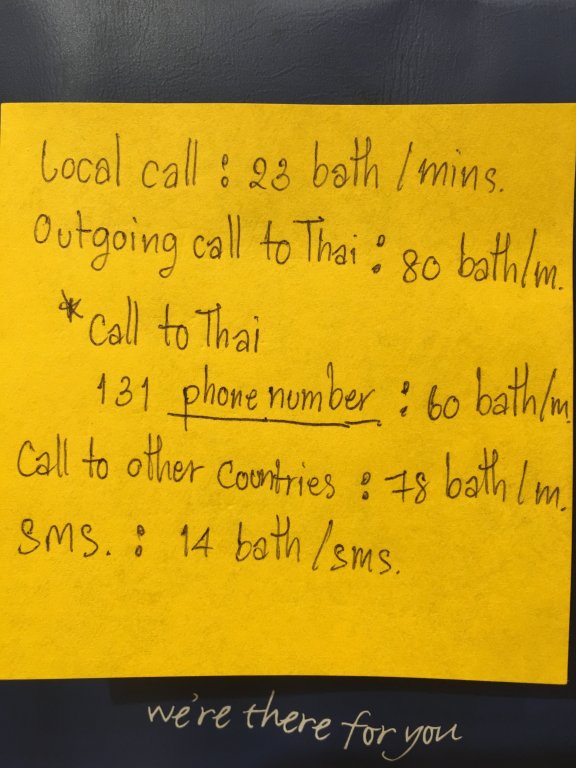 Local call : 23 bath / mins.
Outgoing call to Thai : 80 bath/m.
* Call to Thai
131 phone number : 60 bath/m
Call to other Countries : 78 bath / m.
SMS. : 14 bath / sms.
we're there for you